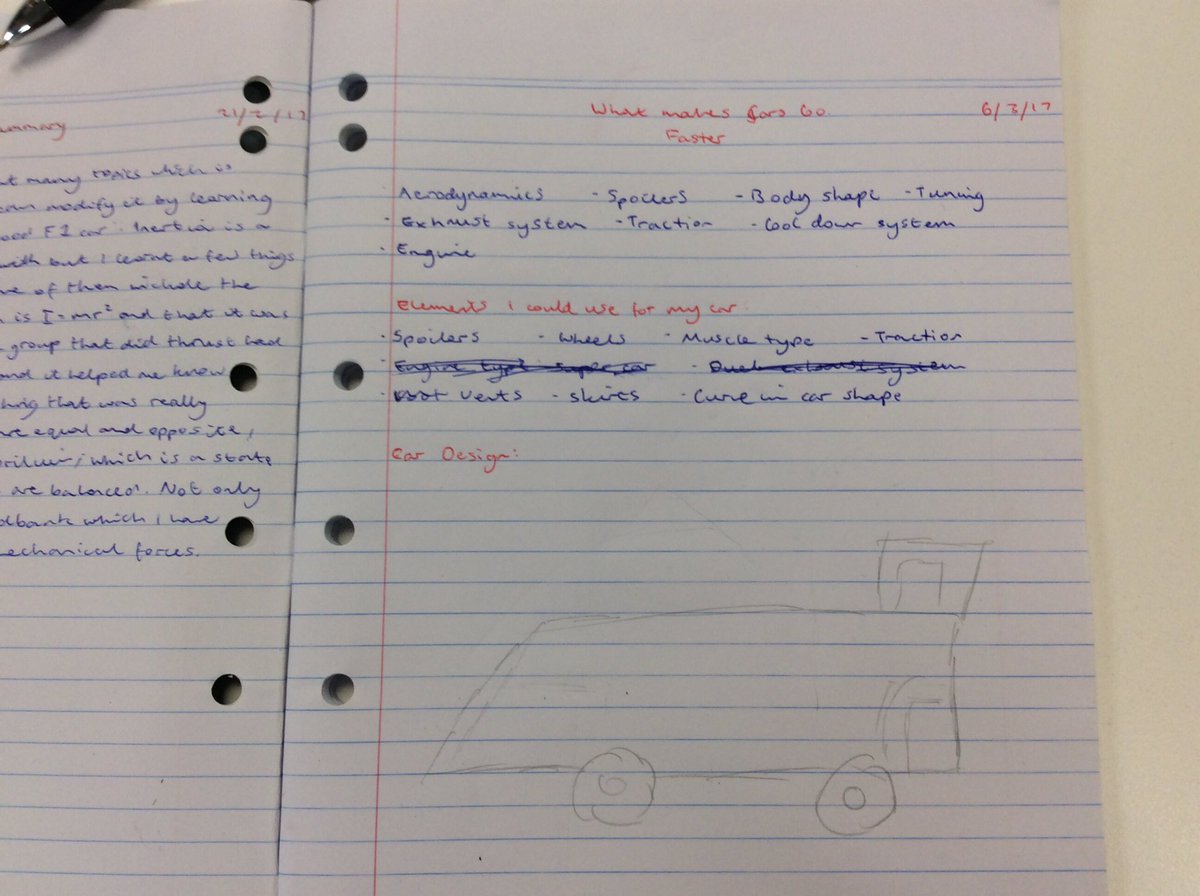 21/2/17
ummary
many topics which is
can modify it by learning
good F1 car. Inertia is a
with but I learnt a few things
of them include the
is I=mr² and that it was
group that did thrust had
and it helped me know
thing that was really
are equal and opposite,
which is a state
are balanced. Not only
which I have
mechanical forces.
What makes Cars Go 6/3/17
Faster
· Aerodynamics - Spoilers - Body shape - Tuning
· Exhaust system - Traction - Cool down system
· Engine
Elements I could use for my car:
· Spoilers - Wheels - Muscle type - Traction
· Engine type super car - Duel exhaust system
· Vents - Skirts · Curve in car shape
Car Design: